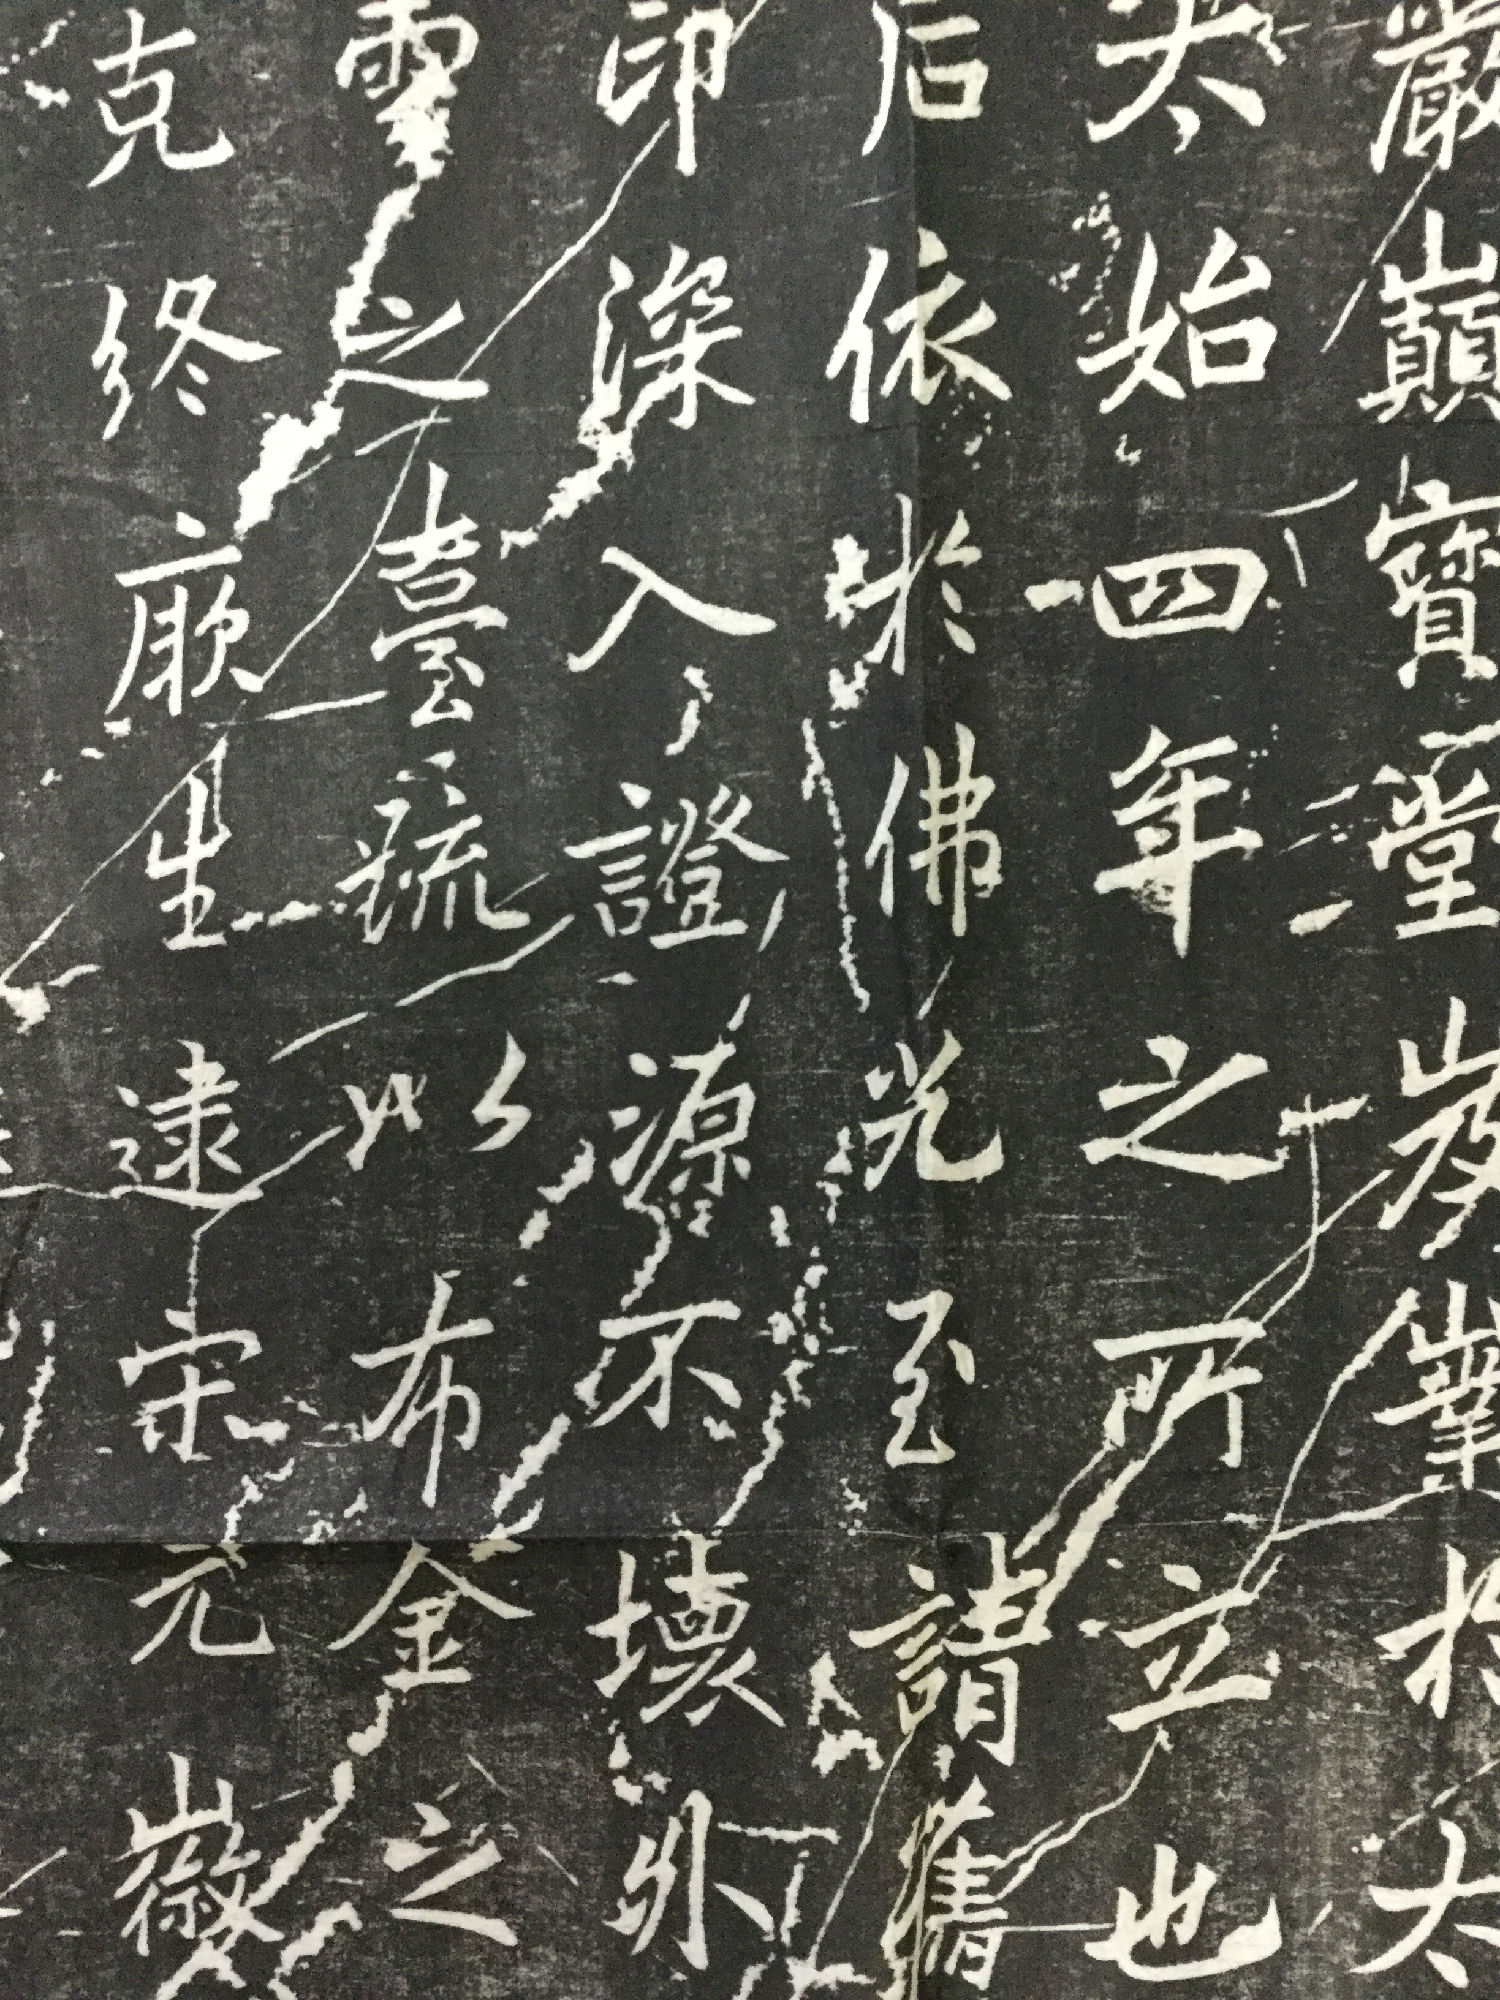 巖巔寶堂岌嶪於太
太始四年之所立也
后依於佛光至請舊
印深入證源不壞外
雲之臺疏以布金之
克終厥生逮宋元徽